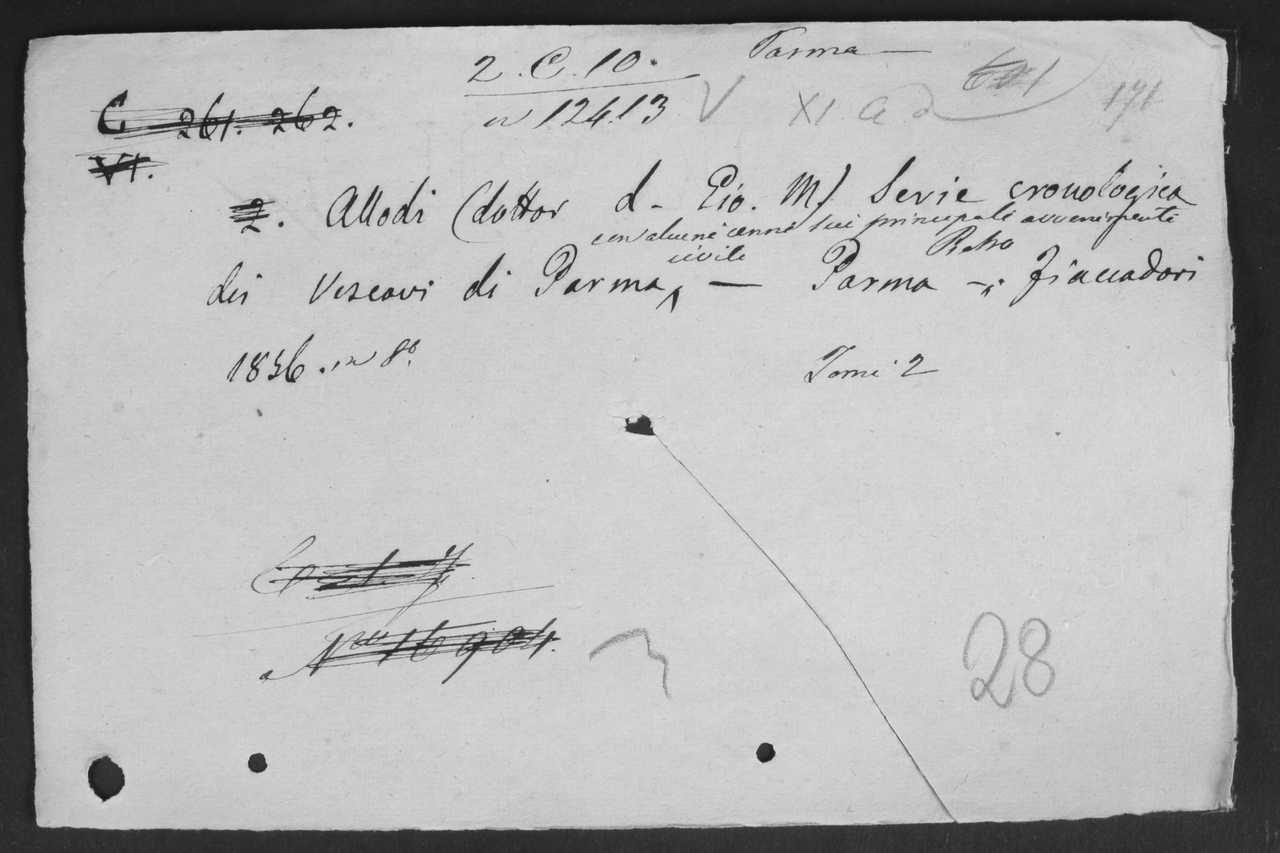 2. C. 10. Parma
C 261. 262. n 12413 V XI. a 2 171
VI.
2. Allodi (dottor d. Pio. M) Serie cronologica
con alcuni cenni sui principali avvenimenti
civili Pietro
dei Vescovi di Parma, — Parma — Fiaccadori
1856. in 8.º Tomi 2
Nro 16904.
28